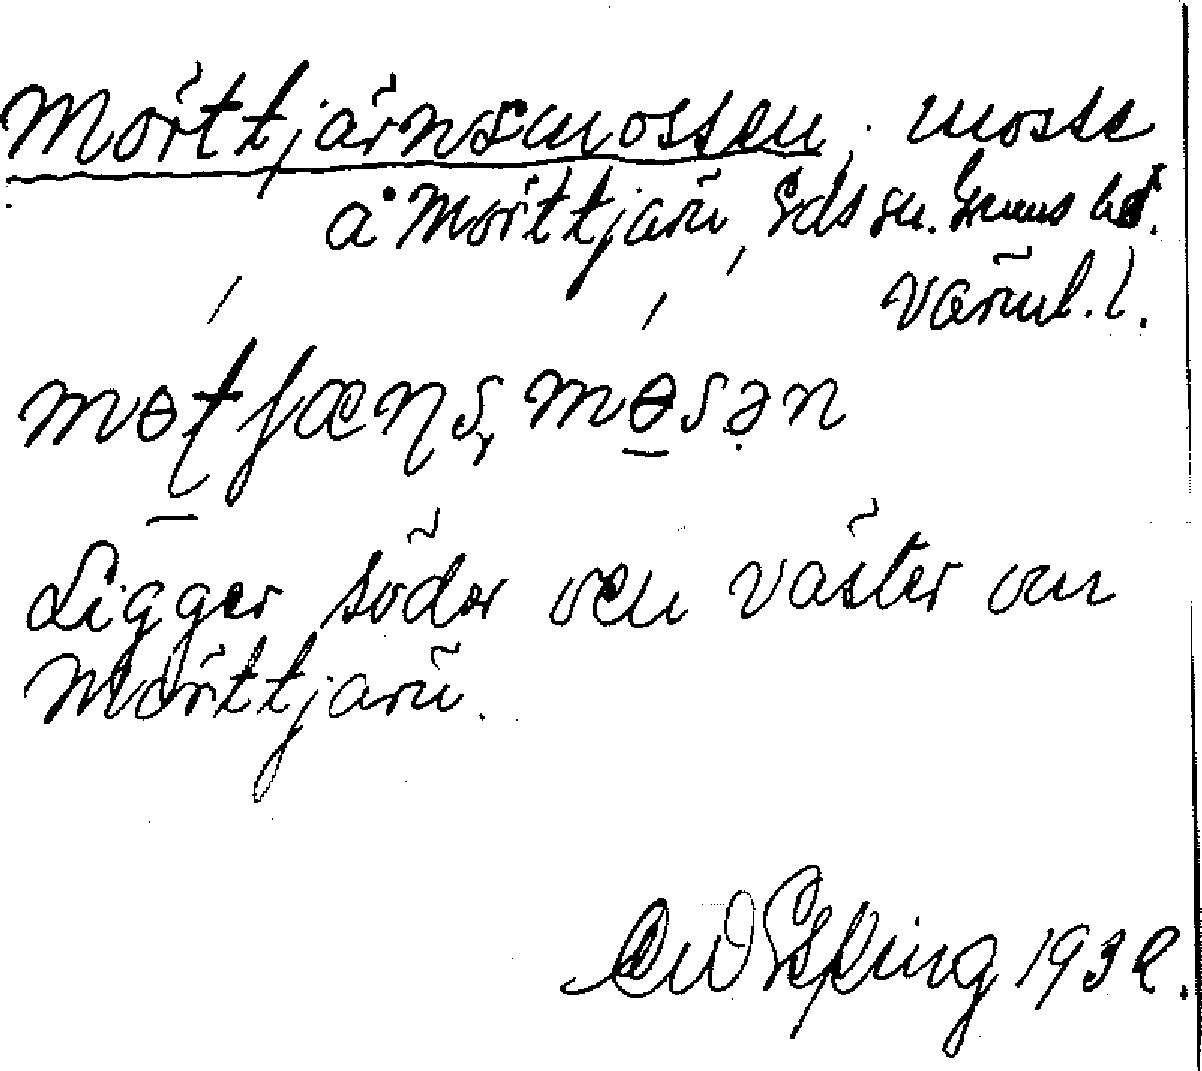 Mörttjärnsmossen, mosse
å Mörttjärn, Eds sn. Grums hd.
Värml. l.
møtjænsmøsən
Ligger söder och väster om
Mörttjärn.
Espling 193